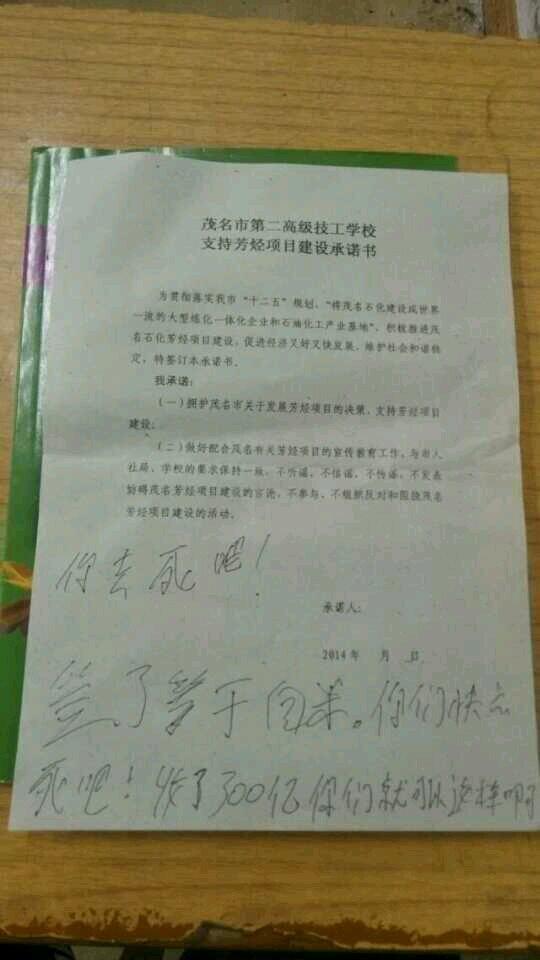 茂名市第二高级技工学校
支持芳烃项目建设承诺书
为贯彻落实我市“十二五”规划、“将茂名石化建设成世界
一流的大型炼化一体化企业和石油化工产业基地”，积极推进茂
名石化芳烃项目建设，促进经济又好又快发展，维护社会和谐稳
定，特签订本承诺书。
我承诺：
（一）拥护茂名市关于发展芳烃项目的决策，支持芳烃项目
建设；
（二）做好配合茂名有关芳烃项目的宣传教育工作，与市人
社局、学校的要求保持一致，不听谣、不信谣、不传谣，不发表
妨碍茂名芳烃项目建设的言论，不参与、不组织反对和阻挠茂名
芳烃项目建设的活动。
你去死吧！
承诺人：
2014年 月 日
签了等于自杀。你们快去
死吧！收了300亿你们就可以这样啊